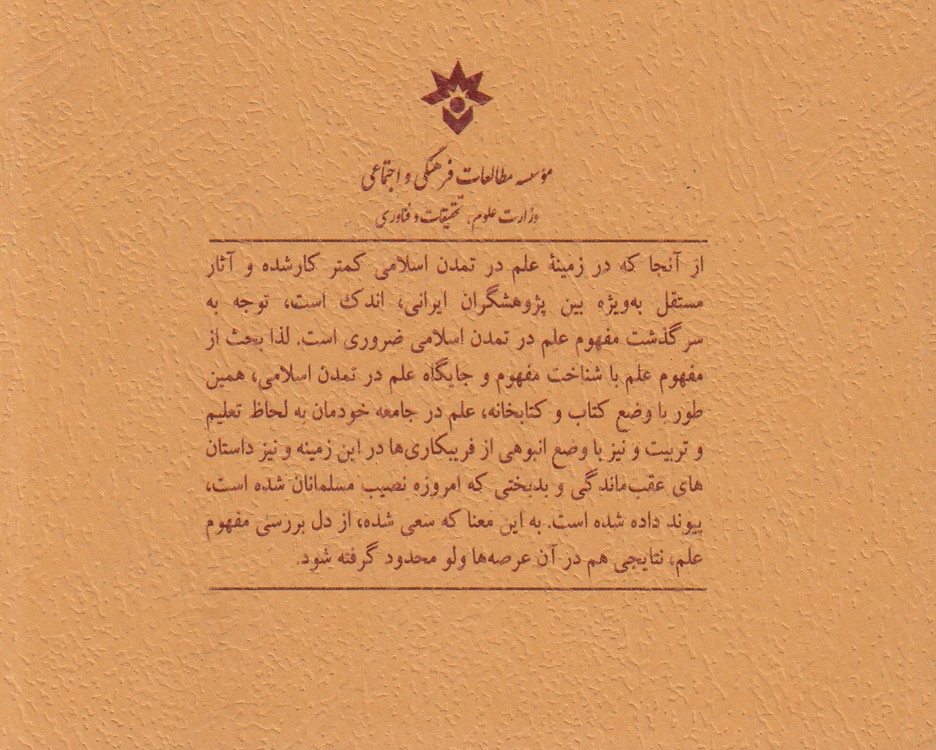 مؤسسه مطالعات فرهنگی و اجتماعی
وزارت علوم، تحقیقات و فناوری
از آنجا که در زمینهٔ علم در تمدن اسلامی کمتر کارشده و آثار
مستقل به‌ویژه بین پژوهشگران ایرانی، اندک است، توجه به
سرگذشت مفهوم علم در تمدن اسلامی ضروری است. لذا بحث از
مفهوم علم با شناخت مفهوم و جایگاه علم در تمدن اسلامی، همین
طور با وضع کتاب و کتابخانه، علم در جامعه خودمان به لحاظ تعلیم
و تربیت و نیز با وضع انبوهی از فریبکاری‌ها در این زمینه و نیز داستان
های عقب‌ماندگی و بدبختی که امروزه نصیب مسلمانان شده است،
پیوند داده شده است. به این معنا که سعی شده، از دل بررسی مفهوم
علم، نتایجی هم در آن عرصه‌ها ولو محدود گرفته شود.